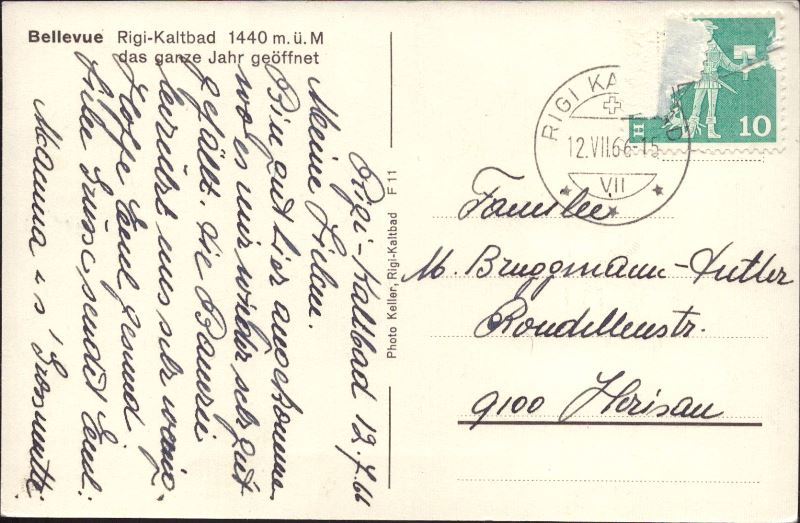 Bellevue Rigi-Kaltbad 1440 m. ü. M
das ganze Jahr geöffnet
Rigi-Kaltbad 12.7.66
Meine Lieben.
Bin gut hier angekommen
wo es mir wieder sehr gut
gefällt. Die Bauerei
berührt uns sehr wenig.
Hoffe Euch gesund
Liebe Grüsse sendet Euch:
M'Anna u s' Grosmutti
Photo Keller, Rigi-Kaltbad F 11
RIGI KALTBAD
12.VII.66-15
VII
H
10
Familie
M. Bruggmann-Sutter
Rondellenstr.
9100 Herisau